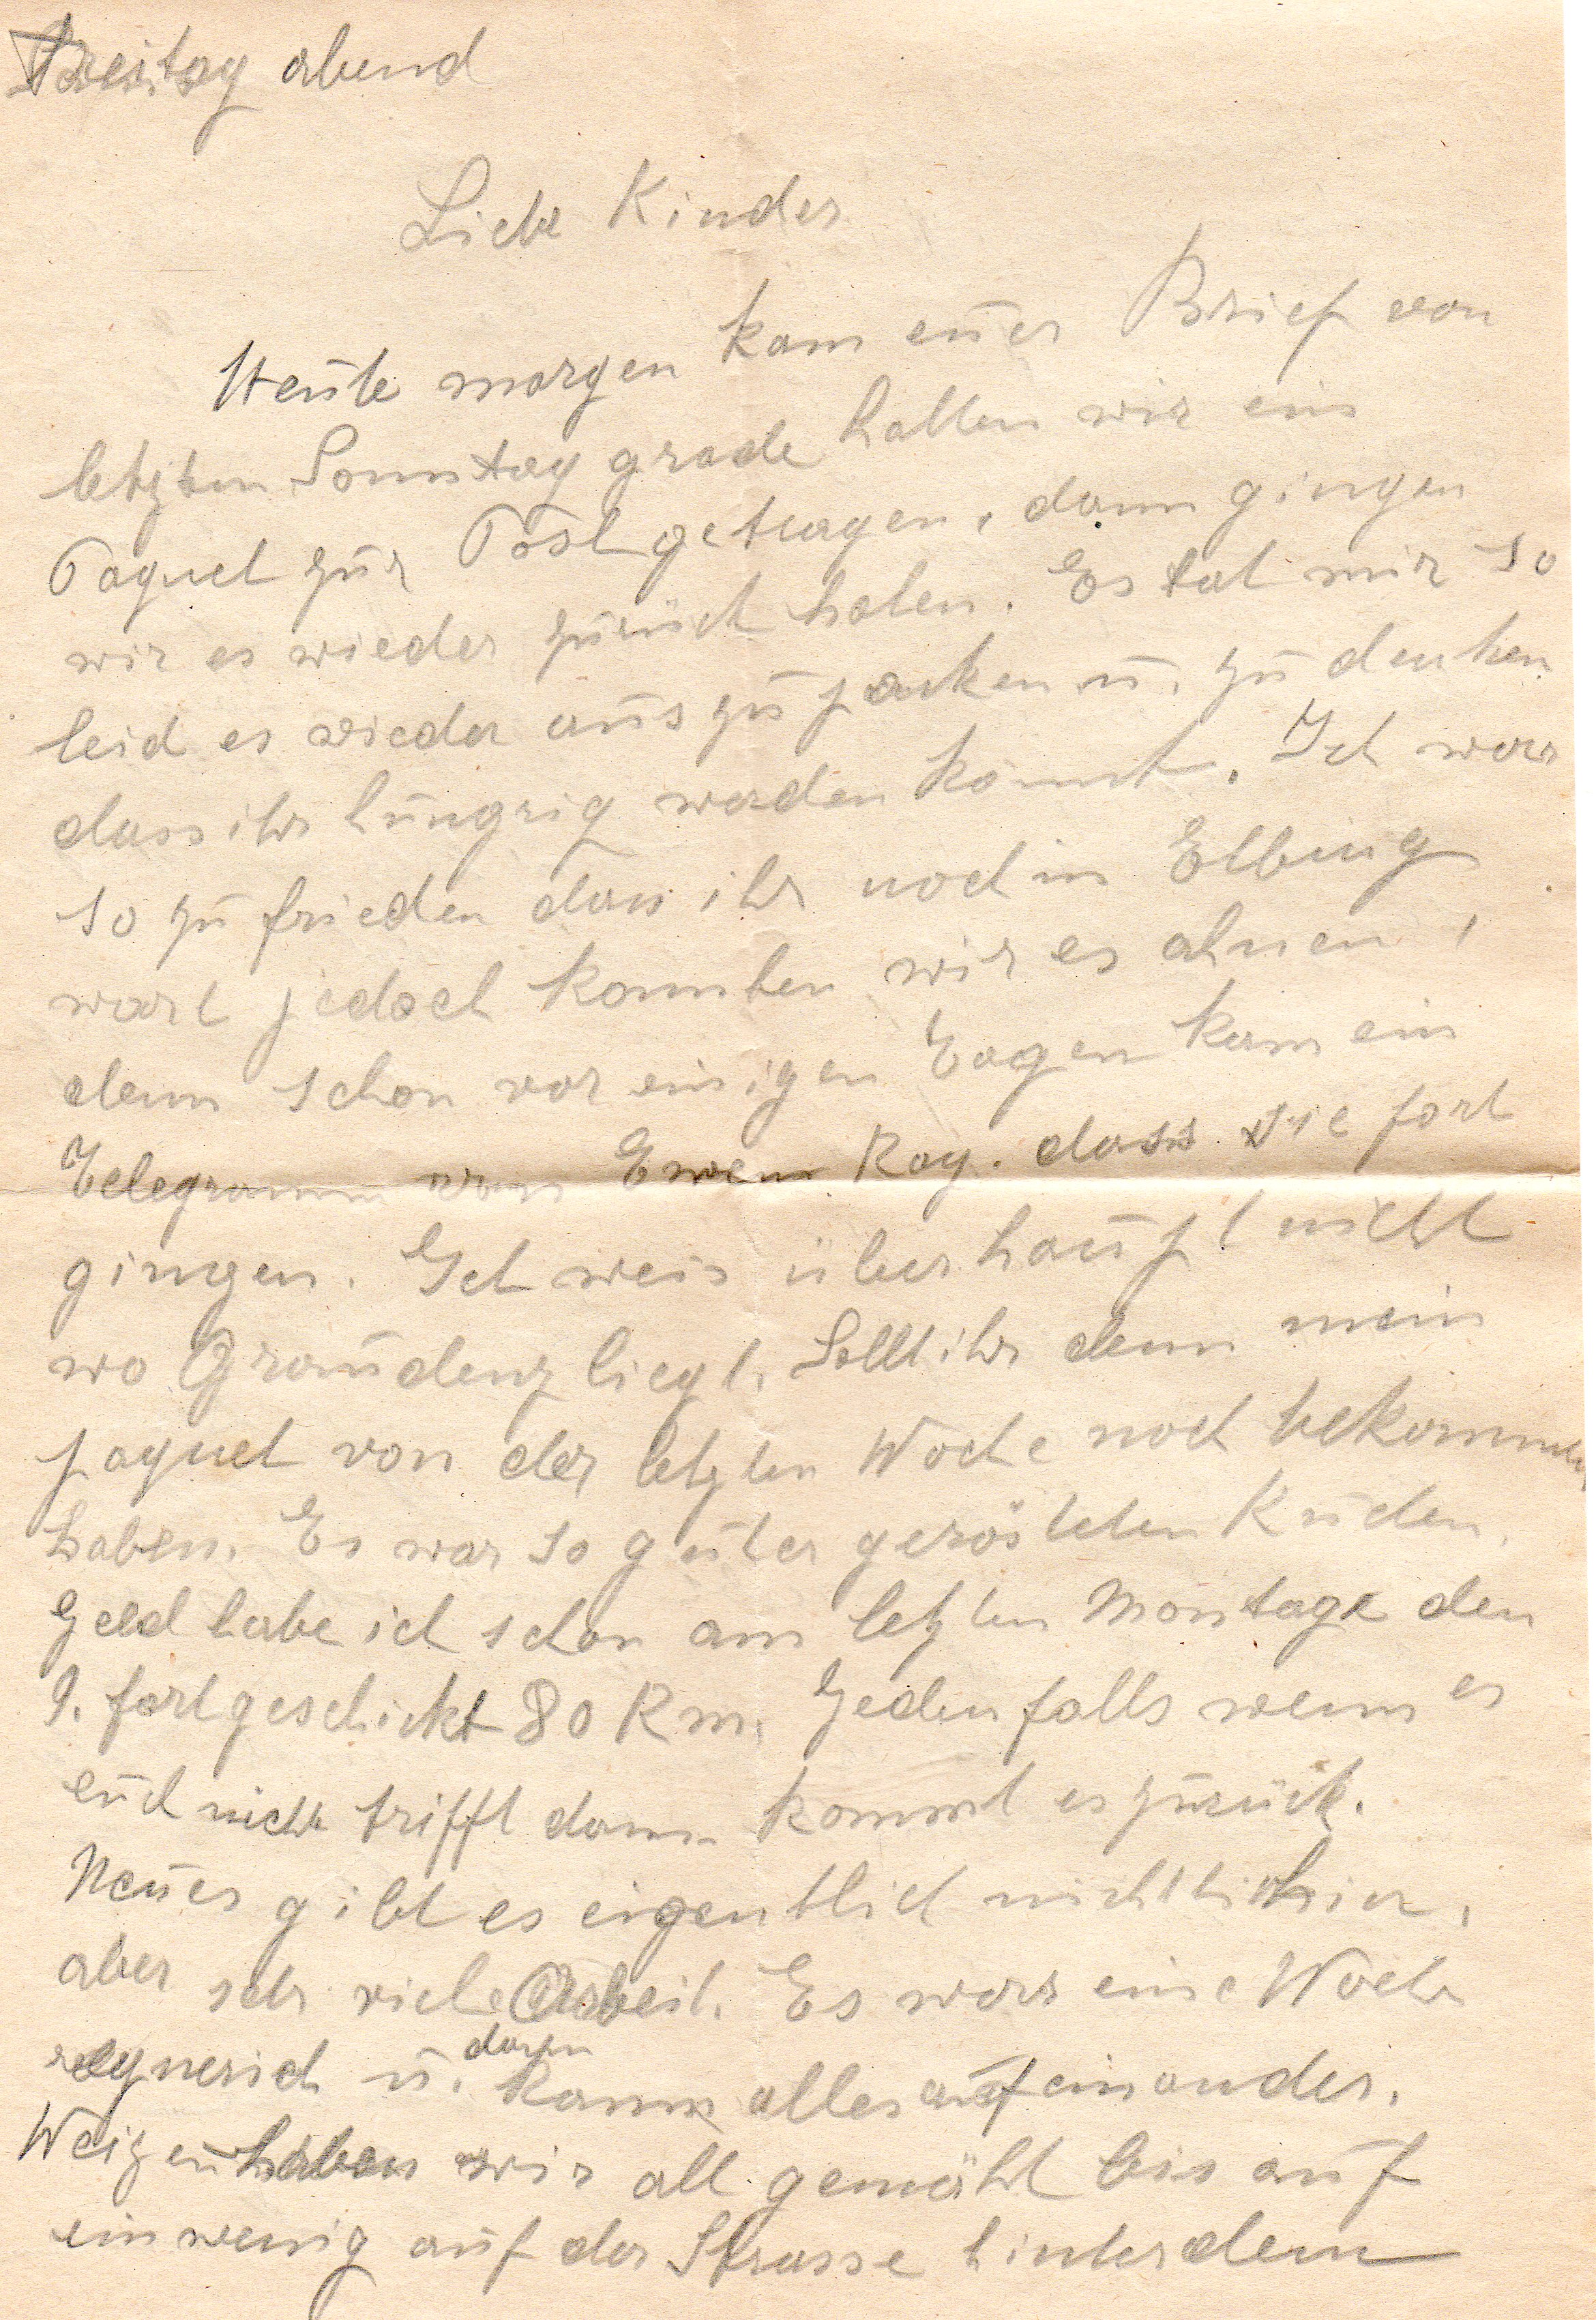 Freitag abend
Liebe Kinder
Heute morgen kam euer Brief von
letzten Sonntag grade hatten wir ein
Paquet zur Post getragen, dann gingen
wir es wieder zurück holen. Es tat mir so
leid es wieder auszupacken u. zu denken
dass ihr hungrig werden könnt. Ich war
so zufrieden dass ihr noch in Elbing
wart jedoch konnten wir es ahnen,
denn schon vor einigen Tagen kam ein
Telegramm von Ray. dass sie fort
gingen. Ich weis überhaupt nicht
wo Graudenz liegt. Sollt ihr denn mein
paquet von der letzten Woche noch bekommen
haben. Es war so guter gerösteten Kuchen.
Geld habe ich schon am letzten Montage den
9. fortgeschickt 80 Rm. Jedenfalls wenn es
euch nicht trifft dann kommt es zurück.
Neues gibt es eigentlich nicht hier,
aber sehr viele Arbeit. Es war eine Woche
regnerich u. dann kamm alles aufeinander.
Weizen haben wir all gemäht bis auf
ein wenig auf der Strasse hinter dem